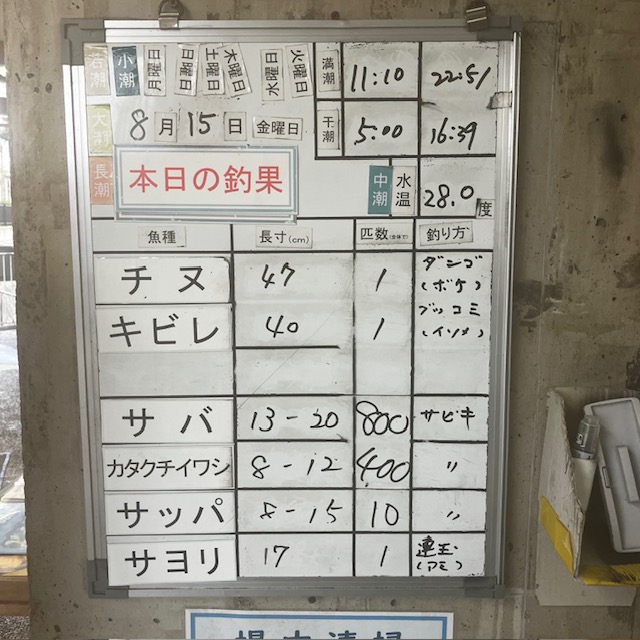 若潮 小潮 月曜日 日曜日 土曜日 木曜日 水曜日 火曜日 満潮 11:10 22:51
大潮
8月15日 金曜日 干潮 5:00 16:39
長潮 本日の釣果 中潮 水温 28.0度
魚種 長寸(cm) 匹数(全体で) 釣り方
チヌ 47 1 ダンゴ(ボケ)
キビレ 40 1 ブッコミ(イソメ)
サバ 13-20 800 サビキ
カタクチイワシ 8-12 400 〃
サッパ 8-15 10 〃
サヨリ 17 1 連玉(アミ)
場内清掃